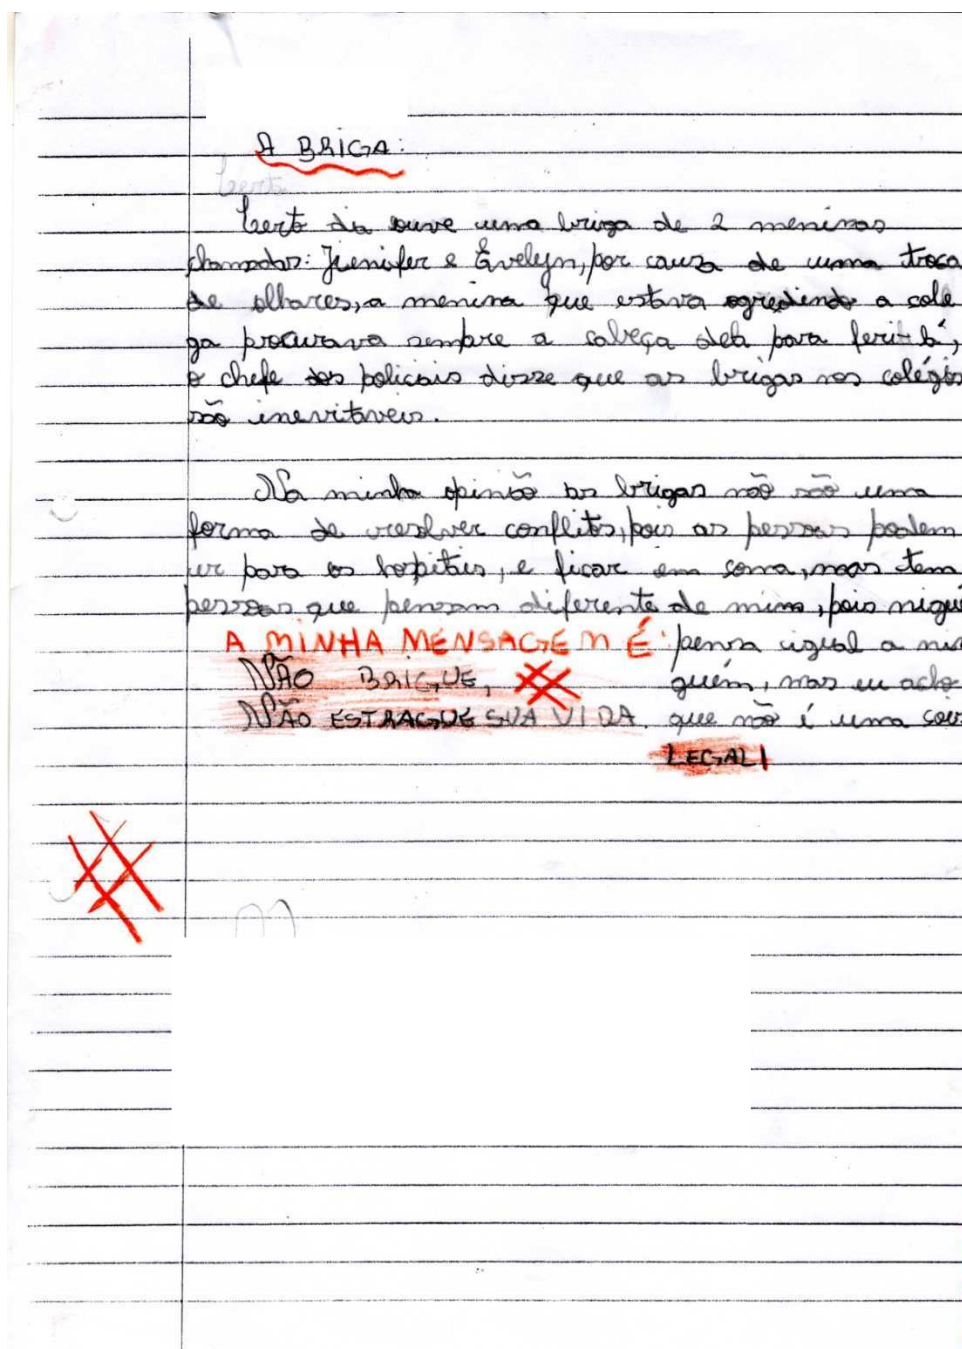 A BRIGA:
Certo
Certo dia ouve uma briga de 2 meninas
chamadas: Jienifer e Évelyn, por causa de uma troca
de olhares, a menina que estava agredindo a cole
ga procurava sempre a cabeça dela para ferir lá,
o chefe dos policais disse que as brigas nos colégios
são inevitaveis.
Na minha opinião as brigas não são uma
forma de resolver conflitos, pois as pessoas podem
ir para os hospitais, e ficar em coma, mas tem
pessoas que pensam diferente de mim, pois nigué
pensa igual a nin
guém, mas eu acho
que não é uma cois
LEGAL!
A MINHA MENSAGEM É:
NÃO BRIGUE,
NÃO ESTRAGUE SUA VIDA.